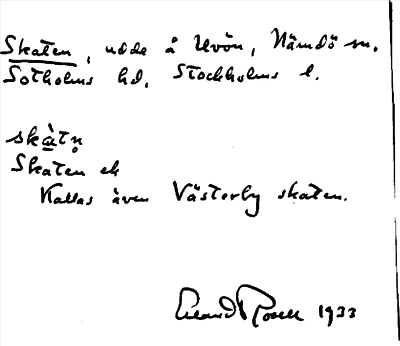 Skaten, udde å Uvön, Nämdö sn.
Sotholms hd, Stockholms l.
skàtn̥
Skaten ek
Kallas även Västerby skaten.
Erland Rosell 1933